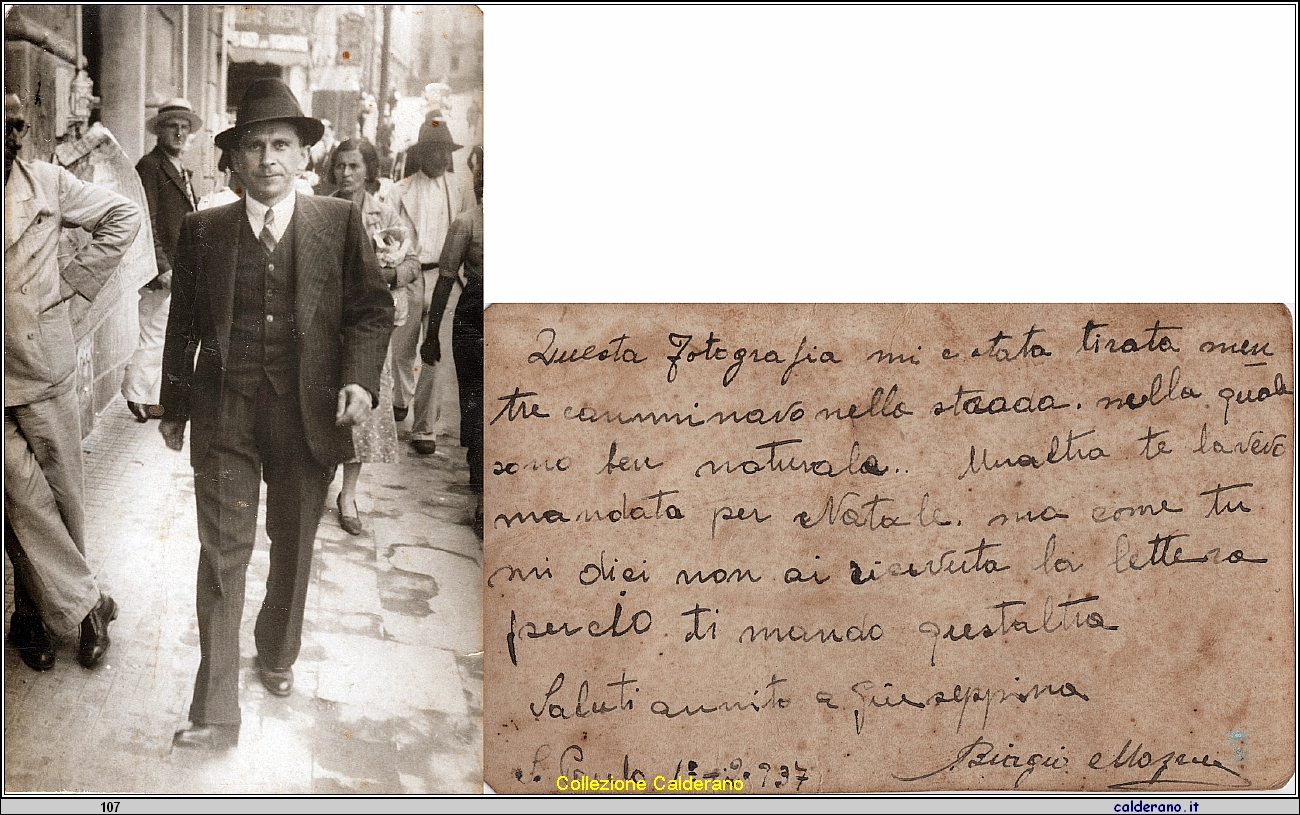 Questa Fotografia mi e stata tirata men
tre camminavo nella staada. nella quale
sono ben naturale.. Unaltra te lavevo
mandata per Natale. ma come tu
mi dici non ai ricevuta la lettera
perciò ti mando questaltra
Saluti aunito a Giuseppina
S. Paulo 937
Biagio
Collezione Calderano
107
calderano.it